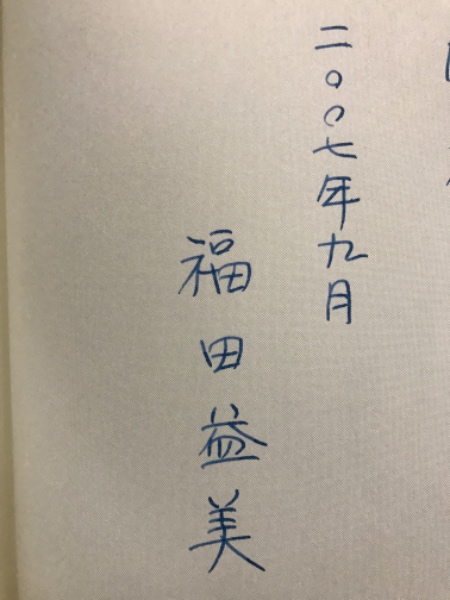 二〇〇七年九月
福田益美